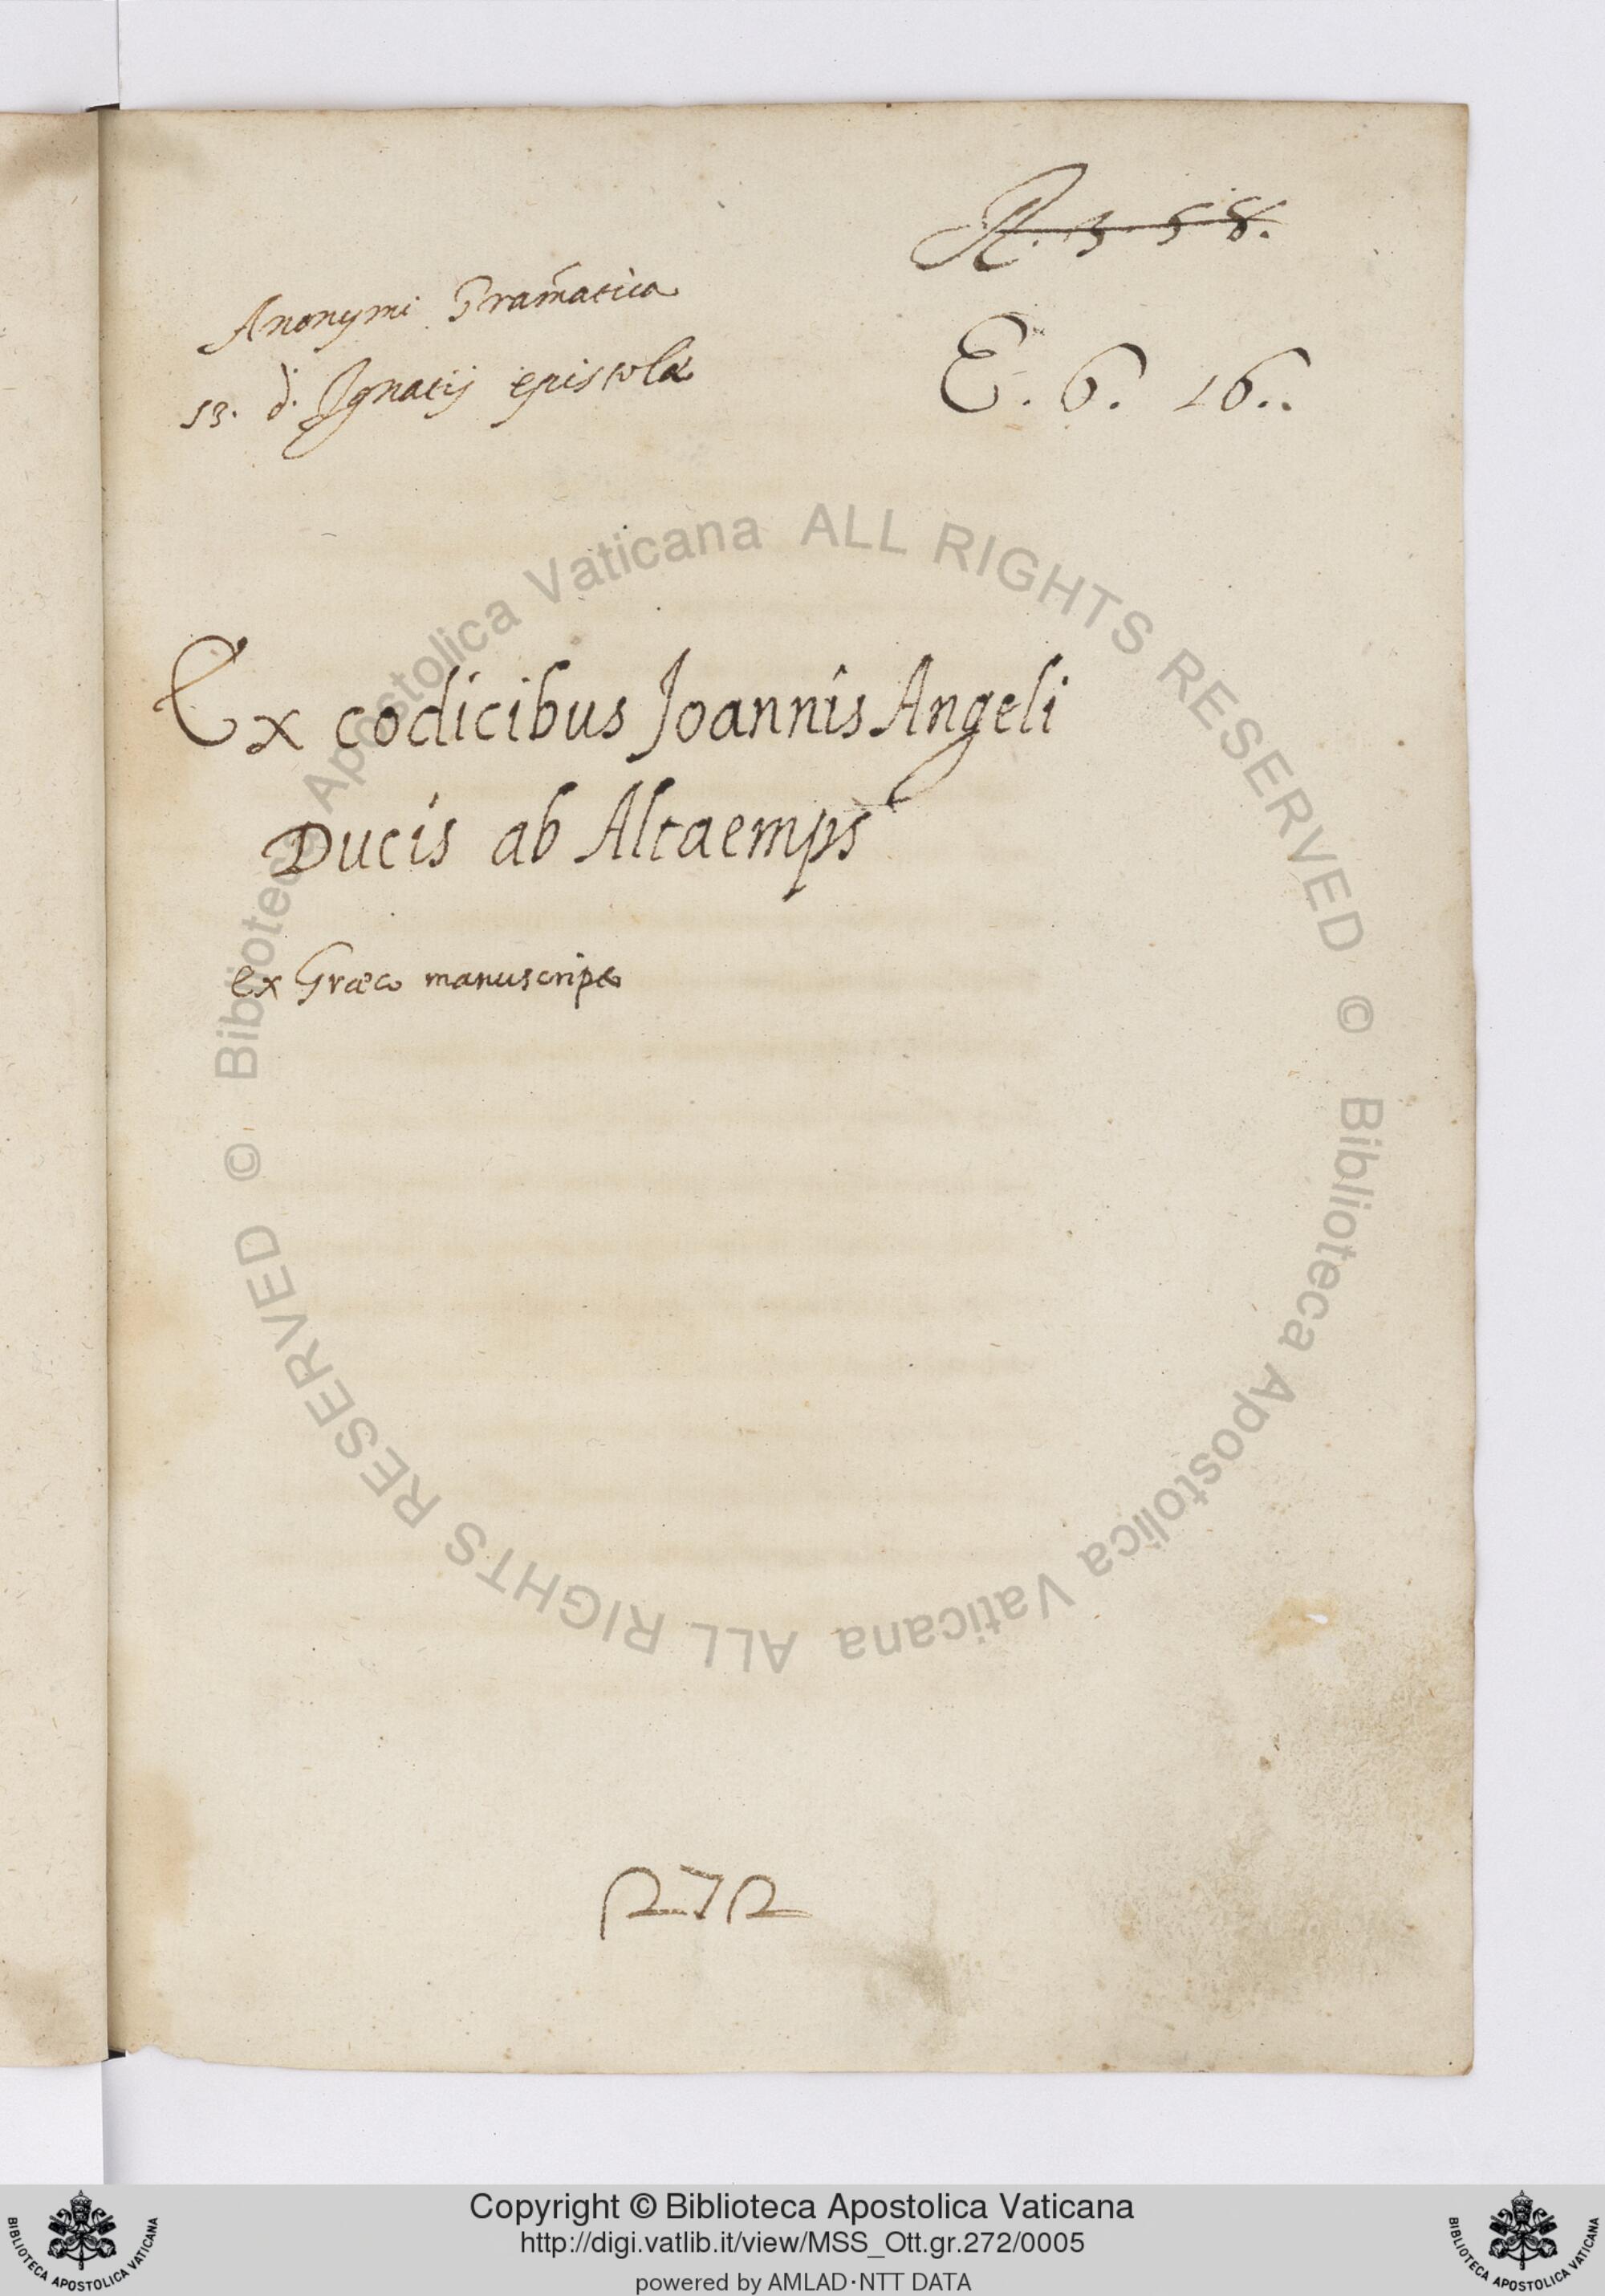 R. 3. 58.
Anonymi Gram̄atica
53. d. Ignatij epistola
E. 6. 16..
Ex codicibus Joannis Angeli
Ducis ab Altaemps
ex Græco manuscripto
272
© Biblioteca Apostolica Vaticana ALL RIGHTS RESERVED
© Biblioteca Apostolica Vaticana ALL RIGHTS RESERVED
Copyright © Biblioteca Apostolica Vaticana
http://digi.vatlib.it/view/MSS_Ott.gr.272/0005
powered by AMLAD·NTT DATA
BIBLIOTECA APOSTOLICA VATICANA
BIBLIOTECA APOSTOLICA VATICANA